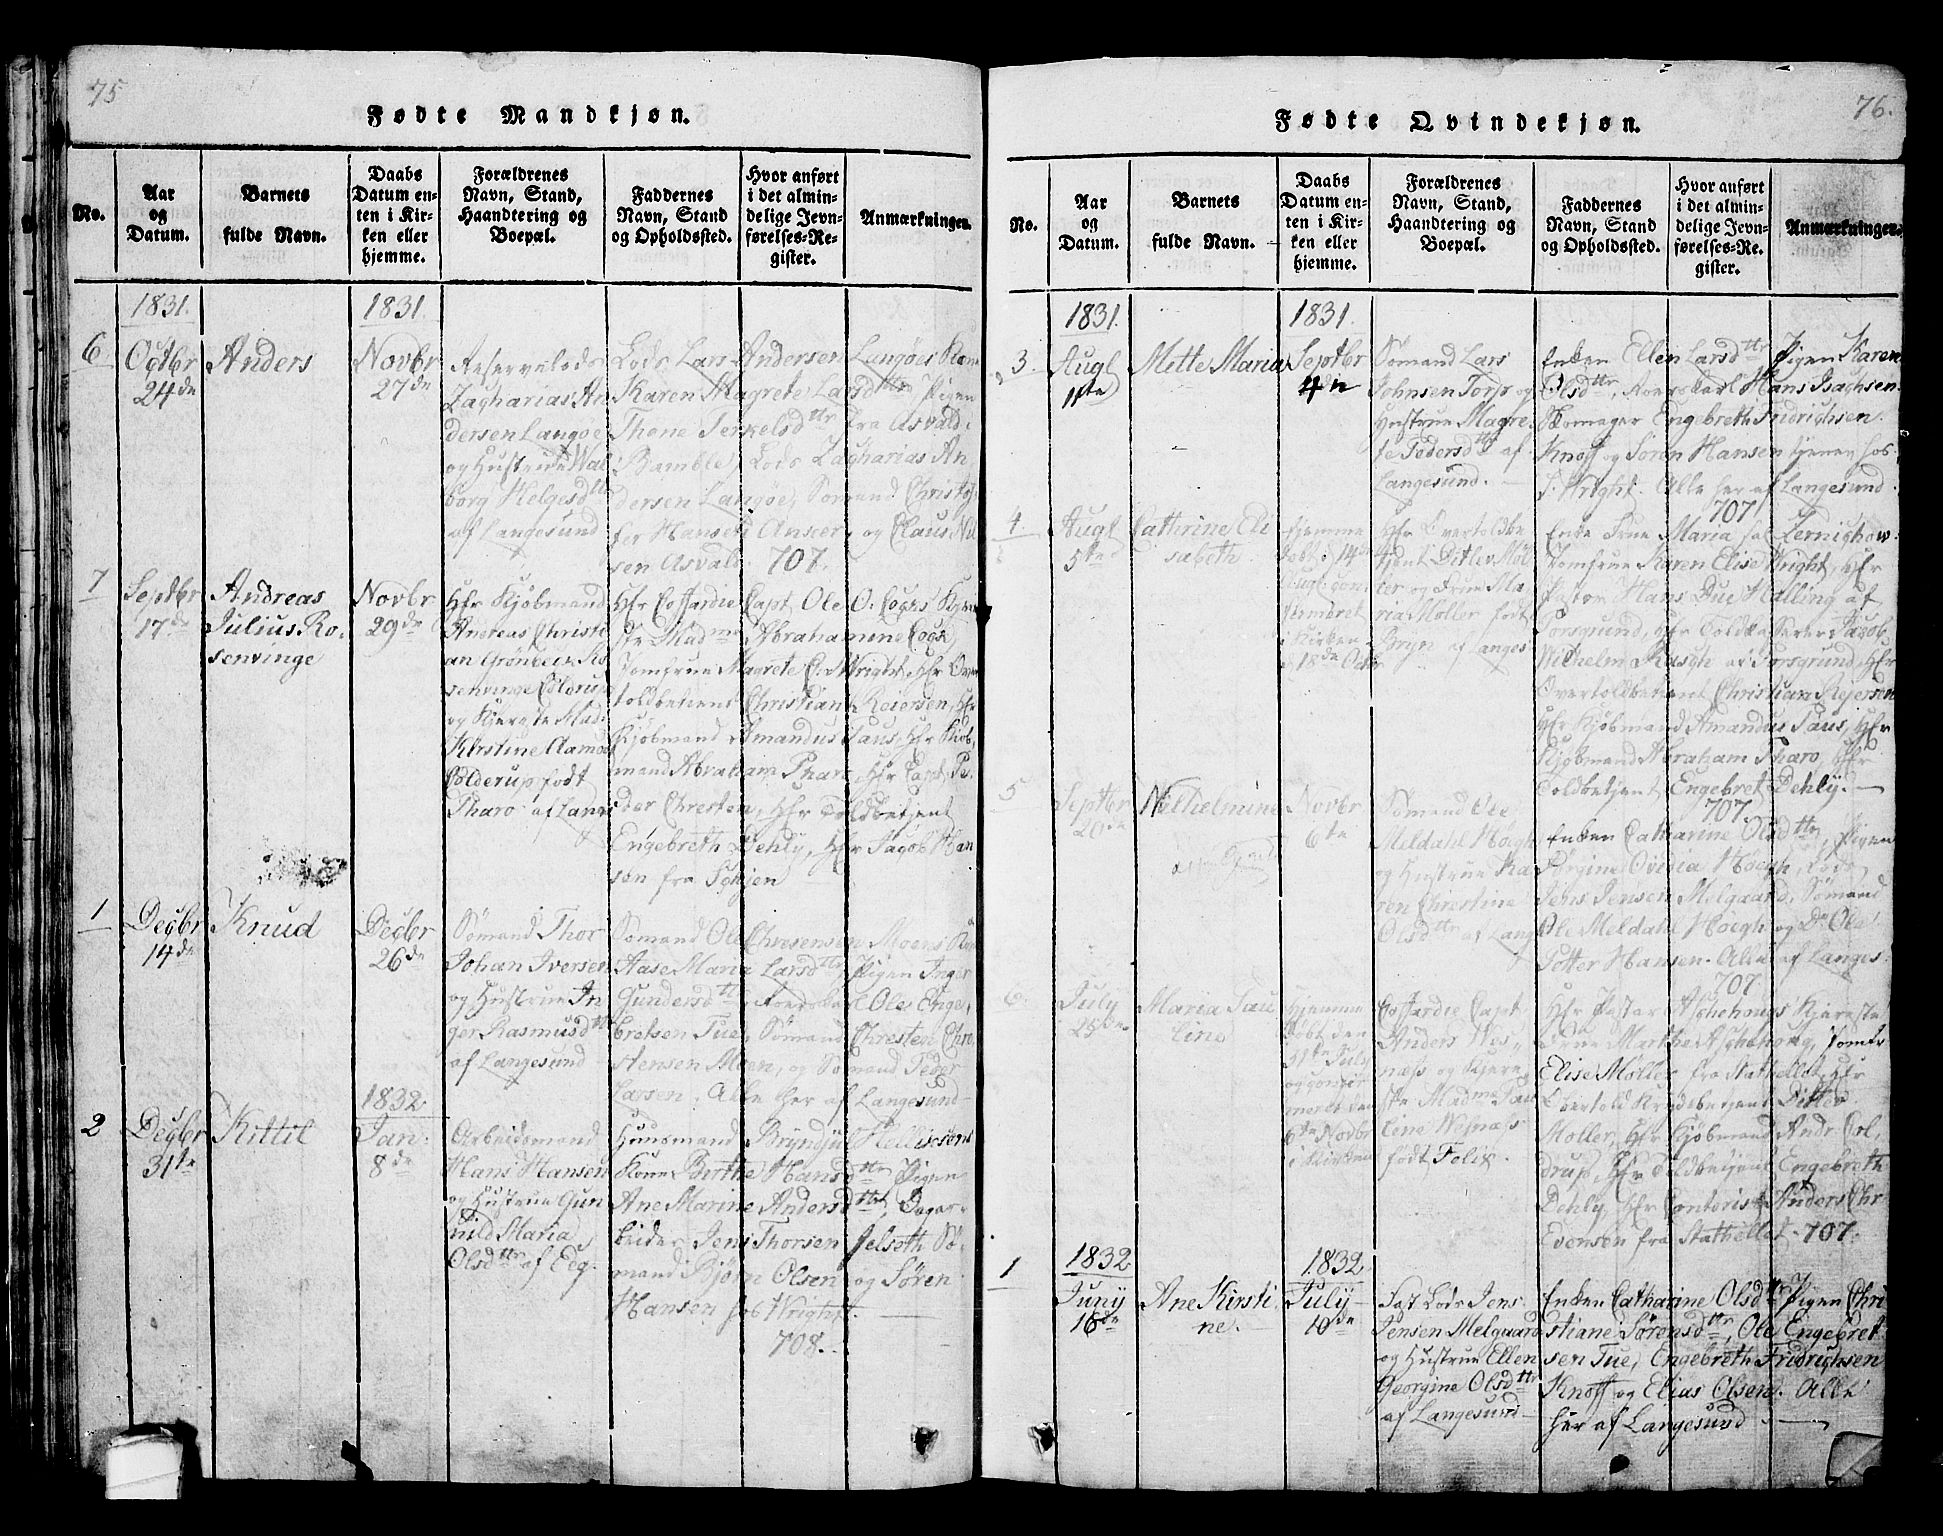 75
Fødte Mandkjøn.
No.
Aar
og
Datum.
Barnets
fulde Navn.
Daabs
Datum en-
ten i Kir-
ken eller
hjemme.
Forældrenes
Navn, Stand,
Haandtering og
Boepæl.
Faddernes
Navn, Stand
og Opholdssted.
Hvor anført
i det almin-
delige Jevn-
førelses-Re-
gister.
Anmærkninger.
1831.
1831.
6
Octbr
24de
Anders
Novbr
27de
Reservelods
Zacharias An
dersen Langøe
og Hustrue Wal
borg Helgesdtr
af Langesund
Lods Lars Andersen Langøes Kone
Karen Magrete Larsdttr Pigen
Thone Terkelsdttr fra Asvald
Bamble, Lods Zacharias An
dersen Langøe, Sømand Christo
fer Hansen Anscer, og Claus Nil
sen Asvald. 707.
7
Septbr
17de
Andreas
Julius Ro-
senvinge
Novbr
29de
Hr Kjøbmand
Andreas Christi
an Grønbeck Ro
senvinge Eoldrup
og Kjereste Mad:
Kirstine Aamo
Coldrup født
Tharo af Lang
Hfr Coffardie Capt. Ole O. Cogs Kjere
ste Madme Abrahamine Cogs
Jomfrue Magrete C. Wright, Hfr Over
toldbetient Christian Reiersen, Hfr
Kjøbmand Amandus Taus, Hfr Kiøb
mand Abraham Tharo, Hfr Capt. Pe
der Chresten, Hfr Toldbetjent
Engebreth Dehly, Hfr Jacob Han
sen fra Schjen
1
Decbr
14de
Knud
Decbr
26de
Sømand Thor
Johan Iversen
og Hustrue In
ger Rasmusdtt
af Langesund
Sømand Ole Chrestensen Moens Kone
Aase Maria Larsdttr Pigen Inger
Gundersdtt, Ole Enge
bretsen Tue, Sømand Chresten Chre
stensen Moen, og Sømand Peder
Larsen. Alle her af Langesund
1832
2
Decbr
31te
Kittil
Jan:
8de
Arbeidsmand
Hans Hansen
og Hustrue Gun
hild Maria
Olsdttr af Eeg.
Huusmand Bryndjul Kelliksens
Kone Berthe Hansdttr Pigen
Ane Marine Andersdttr, Dagar-
beider Jens Thorsen Jelseth Sø-
mand Bjørn Olsen og Søren
Hansen hos Wright.
708.
76.
Fødte Qvindekjøn.
No.
Aar
og
Datum.
Barnets
fulde Navn.
Daabs
Datum en-
ten i Kir-
ken eller
hjemme.
Forældrenes
Navn, Stand,
Haandtering og
Boepæl.
Faddernes
Navn, Stand
og Opholdssted.
Hvor anført
i det almin-
delige Jevn-
førelses-Re-
gister.
Anmærkninger.
1831.
1831.
3.
Augt
11te
Mette Maria
Septbr
4de
Sømand Lars
Johnsen Torp og
Hustrue Magre-
te Pedersdttr af
Langesund.
Enken Ellen Larsdttr Pigen Karen
Olsdttr, Hans Isachsen.
Skomager Engebreth Fridrichsen
Knoff og Søren Hansen tjener hos
Wright. Alle her af Langesund.
707
4.
Augt
5te
Cathrine Eli
sabeth
hjemme
døbt 14de
Augt con
firmeret
i Kirken
18de Octbr
Hfr Overtoldbe
tjent Ditlev Møl
ler og Frue Ma
ria Møller født
Bryn af Langes
Enke Frue Maria sal. Zernichow
Jomfrue Karen Elise Wright, Hfr
Pastor Hans Due Malling af
Porsgrund, Hfr Toldkasserer Jacob
Wilhelm Rasch af Porsgrund, Hfr
Overtoldbetient Christian Rejersen
Hfr Kjøbmand Amandus Taus, Hfr
Kjøbmand Abraham Tharo, Hfr
Toldbetjent Engebret Dehly.
707.
5
Septbr
20de
Wilhelmine
Novbr
6te
Sømand Ole
Meldahl Høegh
og Hustrue Ka
ren Christine
Olsdttr af Lang
Enken Catharine Olsdttr, Pigen
Jørgine Ovidia Høegh, Lods
Jens Jensen Melgaard, Sømand
Ole Meldahl Høegh og Do Ole
Petter Hansen. Alle af Langes.
707
6.
July
25de
Maria Pau
line
Hjemme
døbt den
31te July
og confir
meret den
6te Novbr
i Kirken
Coffardie Capt
Anders Wes-
næss og Kjere
ste Madme Pau
line Wesnæss
født Felix.
Hfr Pastor Aschehougs Kjereste
Frue Marthe Aschehoug, Jomfr
Elise Møller fra Stathellet, Hfr
Overtold Krydsbetjent Ditlev
Møller, Hfr Kjøbmand Andr Col,
drup, Hfr Toldbetjent Engebreth
Dehly, Hfr Contorist Anders Chr
Evensen fra Stathellet. 707.
1832
1832
1
Juny
16de
Ane Kirsti
ne.
July
10de
Fast Lods Jens
Jensen Melgaard
og Hustrue Ellen
Georgine Olsdttr
af Langesund
Enken Catharine Olsdttr Pigen Chri
stiane Sørensdttr, Ole Engebret
sen Tue, Engebreth Fridrichsen
Knoff og Elias Olsen. Alle
her af Langesund